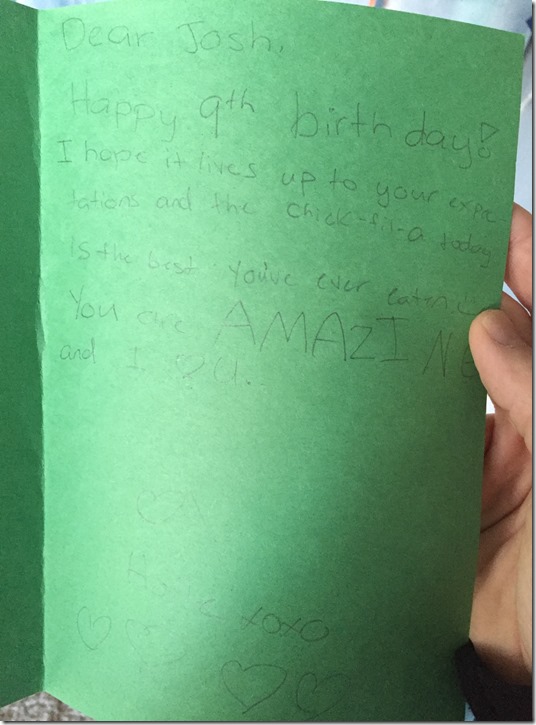 Dear Josh,
Happy 9th birthday!
I hope it lives up to your expec
tations and the chick-fil-a today
is the best you've ever eaten.
You are AMAZING
and I ♡ U.
xoxo